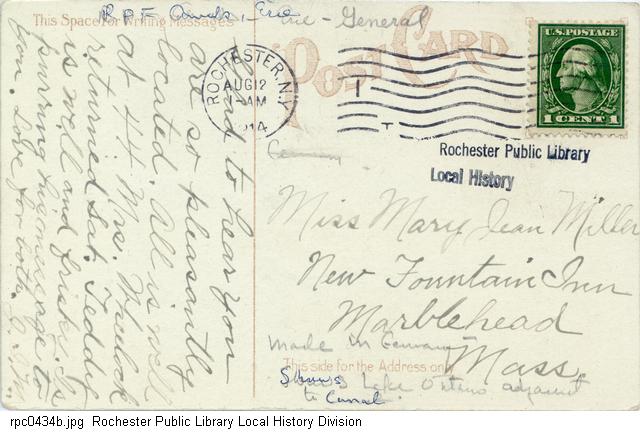 R P F Canals, Erie
Erie - General
This Space for Writing Messages
POST CARD
U.S. POSTAGE
1 CENT 1
ROCHESTER, N.Y.
AUG 12
7 - AM
1914
Rochester Public Library
Local History
Glad to hear you
are so pleasantly
located. All is well
at 44. Mrs. Wheelock
returned Sat. Teddy
is well and frisky. Is
purring his message to
you. Love for both.
Miss Mary Jean Miller
New Fountain Inn
Marblehead
Mass.
made in Germany
This side for the Address only
Shows Lake adjacent
to Canal.
rpc0434b.jpg Rochester Public Library Local History Division